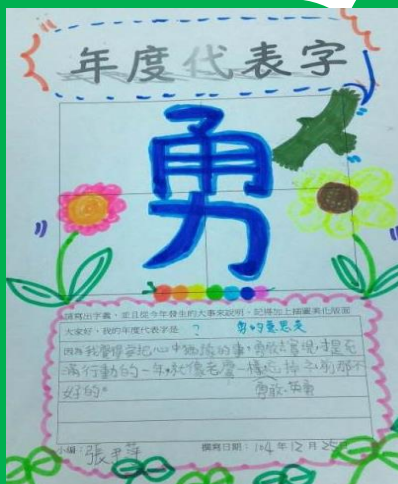 年度代表字
勇
請寫出字義，並且從今年發生的大事來說明，記得加上插畫美化版面
大家好，我的年度代表字是 ？ 勇的意思是
因為我覺得要把心中 的事，勇敢去實現，是充
滿行動的一年，就像老鷹一樣 掉 那不
好的。 勇敢、英勇
小編：張尹萍 撰寫日期：104年12月25日